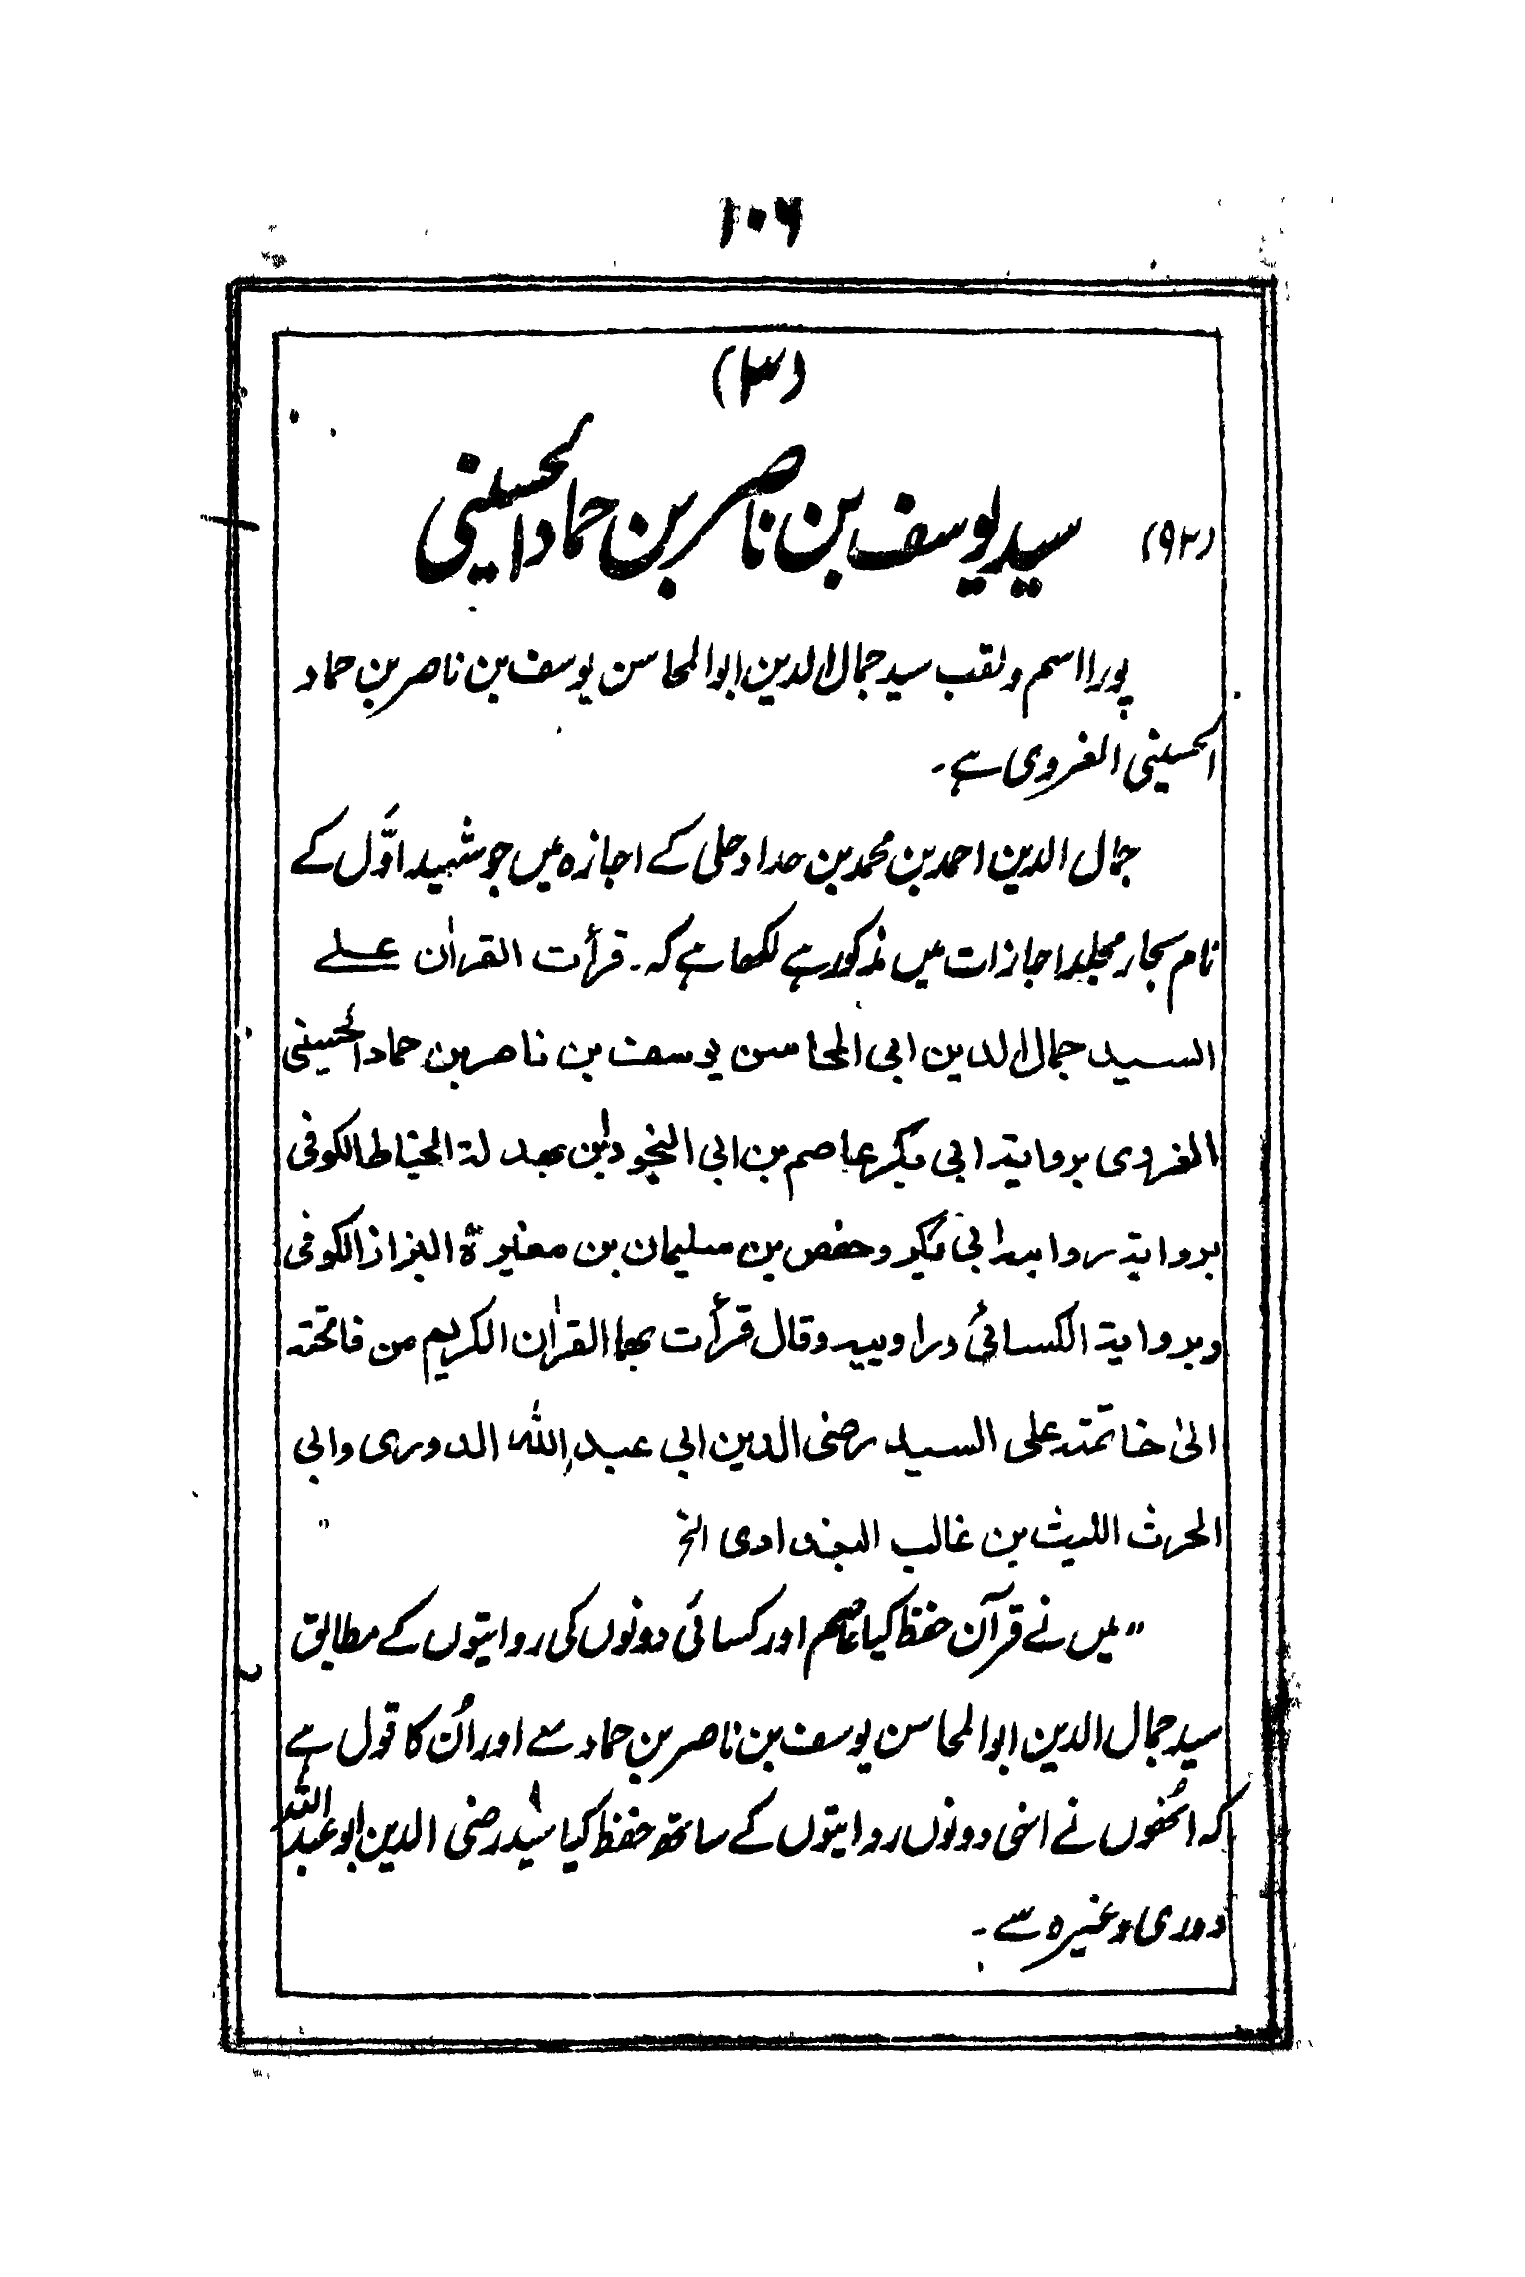 ۱۰۶
(۳)
(۹۳) سید یوسف بن ناصر بن حماد الحسینی
پورا اسم و لقب سید جمال الدین ابوالمحاسن یوسف بن ناصر بن حماد
الحسینی الغروی ہے۔
جمال الدین احمد بن محمد بن حداد حلی کے اجازہ میں جو شہید اوّل کے
نام بحار مجلد اجازات میں مذکور ہے لکھا ہے کہ۔ قرأت القراٰن علے
السید جمال الدین ابی المحاسن یوسف بن ناصر بن حماد الحسینی
الغروی بروایة ابی بکر عاصم بن ابی النجود بن بهدلة الحناط الکوفی
بروایة روایه ابی بکر و حفص بن سلیمان بن مغیرة البزاز الکوفی
وبروایة الکسائی دراوییه وقال قرأت بهما القراٰن الکریم من فاتحته
الیٰ خاتمته علی السید رضی الدین ابی عبد الله الدوری وابی
الحرث اللیث بن غالب البغدادی الخ "
"میں نے قرآن حفظ کیا عاصم اور کسائی دونوں کی روایتوں کے مطابق
سید جمال الدین ابوالمحاسن یوسف بن ناصر بن حماد سے اور اُن کا قول ہے
کہ انھوں نے انہی دونوں روایتوں کے ساتھ حفظ کیا سید رضی الدین ابو عبد اللہ
دوری وغیرہ سے۔